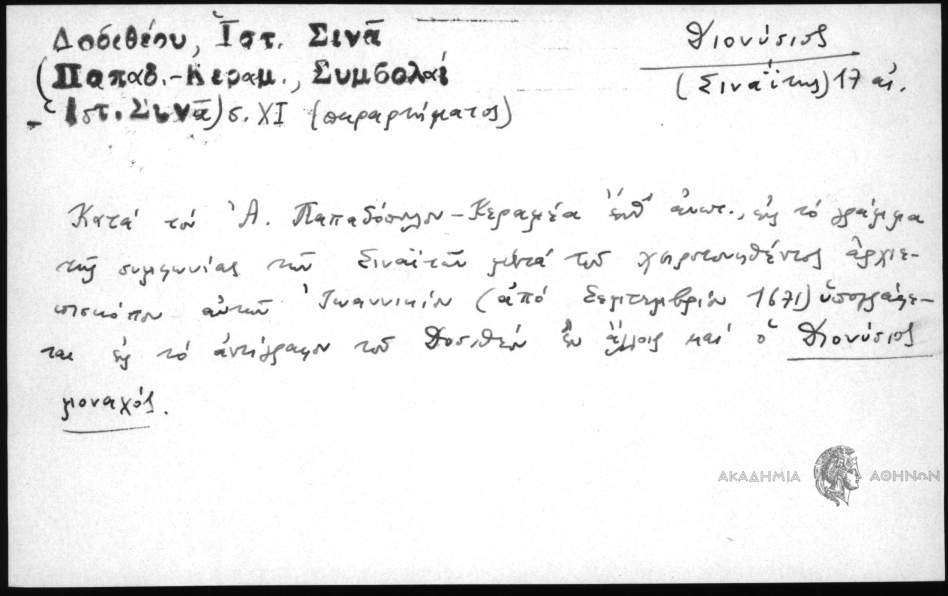 Δοσιθέου, Ἱστ. Σινᾶ
(Παπαδ.-Κεραμ., Συμβολαί
Ἱστ. Σινᾶ) σ. XI (παραρτήματος)
Διονύσιος
(Σιναΐτης) 17 αἰ.
Κατά τόν Ἀ. Παπαδόπουλον-Κεραμέα ἔνθ' ἀνωτ., εἰς τό γράμμα
τῆς συμφωνίας τῶν Σιναϊτῶν μετά τοῦ χειροτονηθέντος ἀρχιε-
πισκόπου αὐτῶν Ἰωαννικίου (ἀπό Σεπτεμβρίου 1671) ὑπογράφε-
ται εἰς τό ἀντίγραφον τοῦ Δοσιθέου ἐν ἄλλοις καί ὁ Διονύσιος
μοναχός.
ΑΚΑΔΗΜΙΑ ΑΘΗΝΩΝ